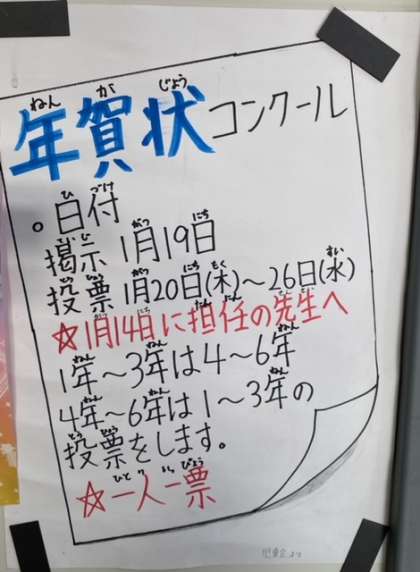 年賀状コンクール
。日付
掲示 1月19日
投票 1月20日(木)～26日(水)
☆1月14日に担任の先生へ
1年～3年は4～6年
4年～6年は1～3年の
投票をします。
☆一人一票
児童会より